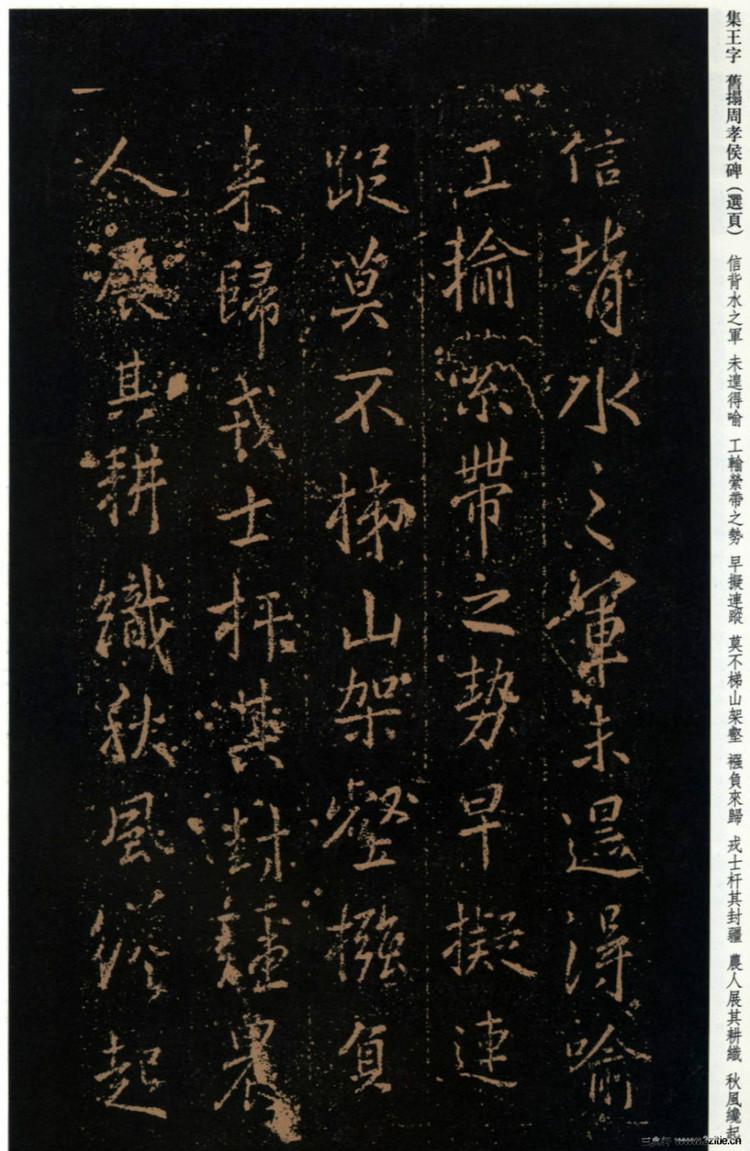 集王字 舊搨周孝侯碑（選頁） 信背水之軍 未遑得喻 工輪縈帶之勢 早擬連蹤 莫不梯山架壑 襁負來歸 戎士扞其封疆 農人展其耕織 秋風纔起
信背水之軍未遑得喻
工輸縈帶之勢早擬連
蹤莫不梯山架壑襁負
来歸戎士扞其封疆農
人展其耕織秋風纔起
www.9zitie.cn